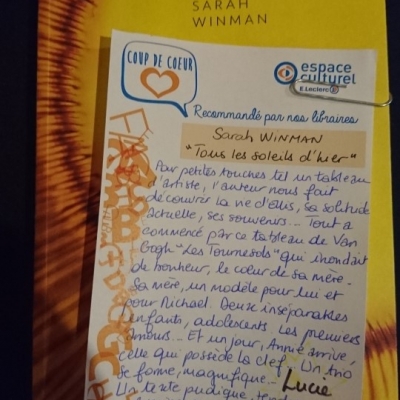 SARAH
WINMAN
COUP DE COEUR
espace
culturel
E.Leclerc
Recommandé par nos libraires
Sarah WINMAN
"Tous les soleils d'hier"
Par petites touches tel un tableau
d'artiste, l'auteur nous fait
découvrir la vie d'Ellis, sa solitude
actuelle, ses souvenirs... Tout a
commencé par ce tableau de Van
Gogh "Les Tournesols" qui inondait
de bonheur, le coeur de sa mère.
Sa mère, un modèle pour lui et
pour Michael. Deux inséparables
enfants, adolescents les premiers
amours... Et un jour, Annie arrive,
celle qui possède la clef... Un trio
se forme, magnifique...
Lucie
Un texte pudique,